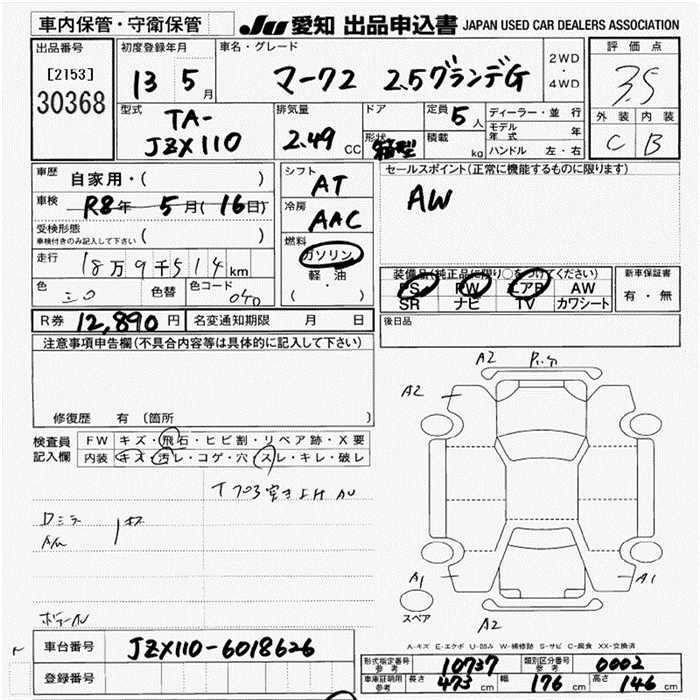 車内保管・守衛保管
JU 愛知 出品申込書 JAPAN USED CAR DEALERS ASSOCIATION
出品番号
[2153]
30368
初度登録年月
13 5月
車名・グレード
マーク2 2.5グランデG
2WD
・
4WD
評価点
3.5
外装 内装
C B
型式
TA-
JZX110
排気量
2.49 CC
ドア
形状
箱型
定員 5人
積載 kg
ディーラー・並行
モデル年式 年
ハンドル 左・右
車歴 自家用・( )
車検 R8年 5月(16日)
受検形態
車検付きのみ記入して下さい ( )
走行 18万9千514km
色 シロ 色替 色コード 040
シフト
AT
冷房
AAC
燃料
ガソリン
軽・油
( ・ )
セールスポイント(正常に機能するものに限ります)
AW
装備品(純正品に限り○をつけてください)
PS PW エアB AW
SR ナビ TV カワシート
新車保証書
有・無
R券 12,890円 名変通知期限 月 日
後日品
注意事項申告欄(不具合内容等は具体的に記入して下さい)
修復歴 有 (箇所
検査員
記入欄
FW キズ・飛石・ヒビ割・リペア跡・X要
内装 キズ・汚レ・コゲ・穴・スレ・キレ・破レ
A2
A2
A1
A1
A2
スペア
A-キズ E-エクボ U-凹み W-補修跡 S-サビ C-腐食 XX-交換済
車台番号 JZX110-6018626
登録番号
形式指定番号
参考
10737
類別区分番号
参考
0002
車庫証明用
参考
長さ 473cm 幅 176cm 高さ 146cm